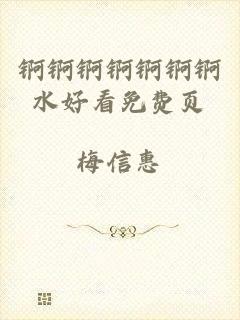 锕锕锕锕锕锕锕
水好看免费页
梅信惠